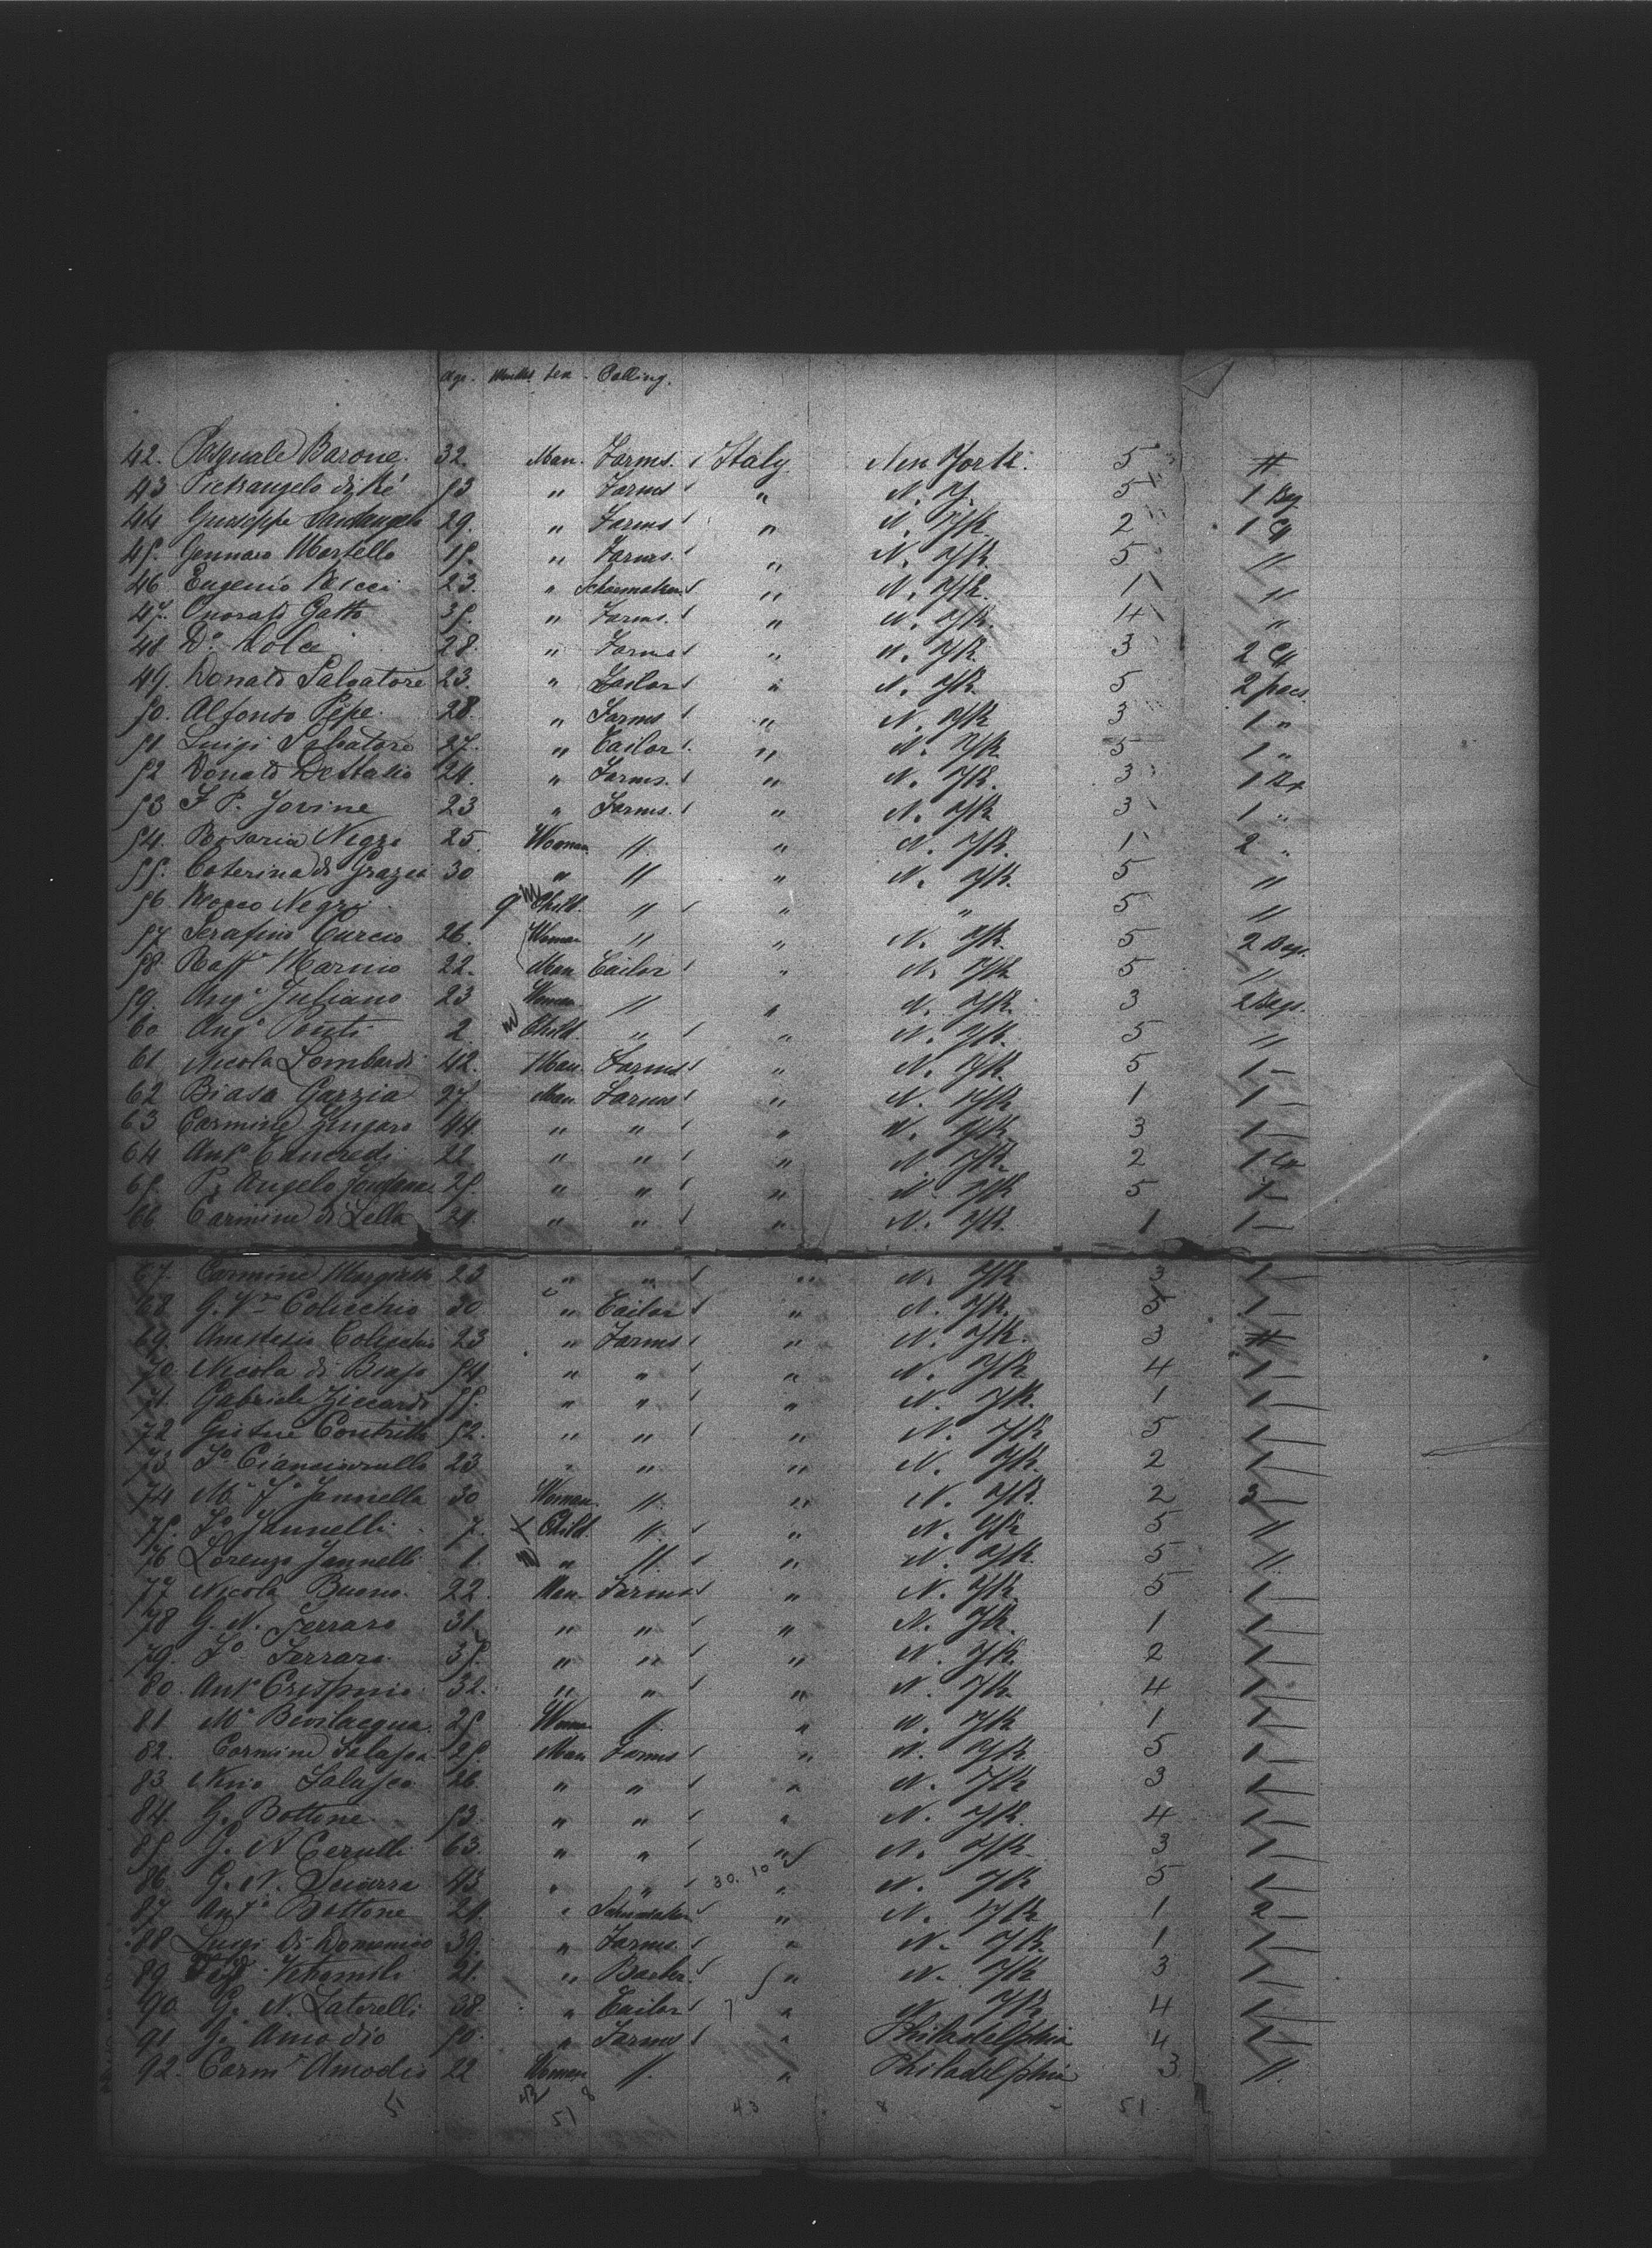 Age. Months. Sex. Calling.
42. Pasquale Barone. 32. Man. Farms. Italy New York. 5 "
43 Pietrangelo di Ré 53 " Farms " N. Y. 5 1 Bag
44 Giuseppe Santangelo 29. " Farms " N. Yk. 2 1
45. Gennaro Martello 15. " Farms. " N. Yk. 5 "
46 Eugenio Ricci 23. " Schoemaker " N. Yk. 1 "
47. Onorato Gatto 35. " Farms. " N. Yk. 4 "
48 Do. Dolce 28. " Farms " N. Yk. 3 2
49. Donato Salvatore 23. " Tailor " N. Yk. 5 2 pacs
50. Alfonso Pepe. 28. " Farms " N. Yk 3 1 "
51 Luigi Salvatore 27. " Tailor " N. Yk. 5 1 "
52 Donato DeStasio 24. " Farms. " N. Yk. 3 1 Bx
53 F. P. Jovine 23 " Farms. " N. Yk 3 1 "
54. Rosaria Negri 25. Woman. " " N. Yk. 1 2 "
55. Caterina di Grazia 30 " " " N. Yk. 5 "
56. Rocco Negri. 9 m Child. " " " 5 "
57 Serafino Curcio 26. Woman " " N. Yk. 5 2 Bags.
58. Raffe Marino 22. Man Tailor " N. Yk 5 "
59. Anga Juliano 23 Woman " " N. Yk. 3 2 Bags.
60 Anga Ponti 2. m Child. " " N. Yk. 5 "
61 Nicola Lombardi 42. Man Farms " N. Yk. 5 1 —
62 Biasa Garzia 27. Man Farms " N. Yk 1 1 —
63 Carmine Gingaro 44 " " " N. Yk. 3 1 —
64 Anto Tancredi 22 " " " N. Yk. 2 1
65. P. Angelo Fontana 25. " " " N. Yk 5 1 —
66 Carmine di Lella 24. " " " N. Yk. 1 1 —
67. Carmine 23 " " " N. Yk 3 1 —
68 G. Colicchio 30 " Tailor " N. Yk. 5 1 —
69. Anastasio Colicchio 23 " Farms " N. Yk. 3 "
70. Nicola di Biaso 54 " " " N. Yk 4 1 —
71. Gabriele Ziccardi 55. " " " N. Yk. 1 1 —
72 52. " " " N. Yk 5 1 —
73 Fo Cianciarullo 23 " " " N. Yk. 2 1 —
74 Ma Fa Jannella 30 Woman. " " N. Yk. 2 3 —
75. Fo Jannelli. 7. Child. " " N. Yk 5 "
76 Lorenzo Jannelli 1. m " " " N. Yk. 5 "
77 Nicola Buono. 22. Man Farms " N. Yk 5 1 —
78 G. N. Ferraro 31. " " " N. Yk. 1 1 —
79. Fo Ferraro. 35. " " " N. Yk. 2 1 —
80. Anto Crispino 32. " " " N. Yk. 4 1 —
81 Ma Bevilacqua. 25 Woman " " N. Yk 1 1 —
82. Carmine Salasca 25. Man Farms " N. Yk 5 1 —
83 Nino Salasca 26. " " " N. Yk 3 1 —
84. G. Bottone. 53. " " " N. Yk. 4 1 —
85 G. N Cerulli 63. " " " N. Yk. 3 1 —
86. G. N. Sciarra 43 " " 30. 10 " N. Yk 5 1 —
87 Anto Bottone 24. " Schumaker " N. Yk 1 2 —
88 Luigi Di Domenico 39. " Farms. " N. Yk. 1 1 —
89 21. " Barber. " N. Yk 3 1 —
90 G. N. Latorelli 38. " Tailor " N. Yk 4 1 —
91 G. Amodio 50. " Farms " Philadelphia 4 1 —
92. Carma Amodio 22 Woman. " " Philadelphia 3 "
43 8 51 43 8 51